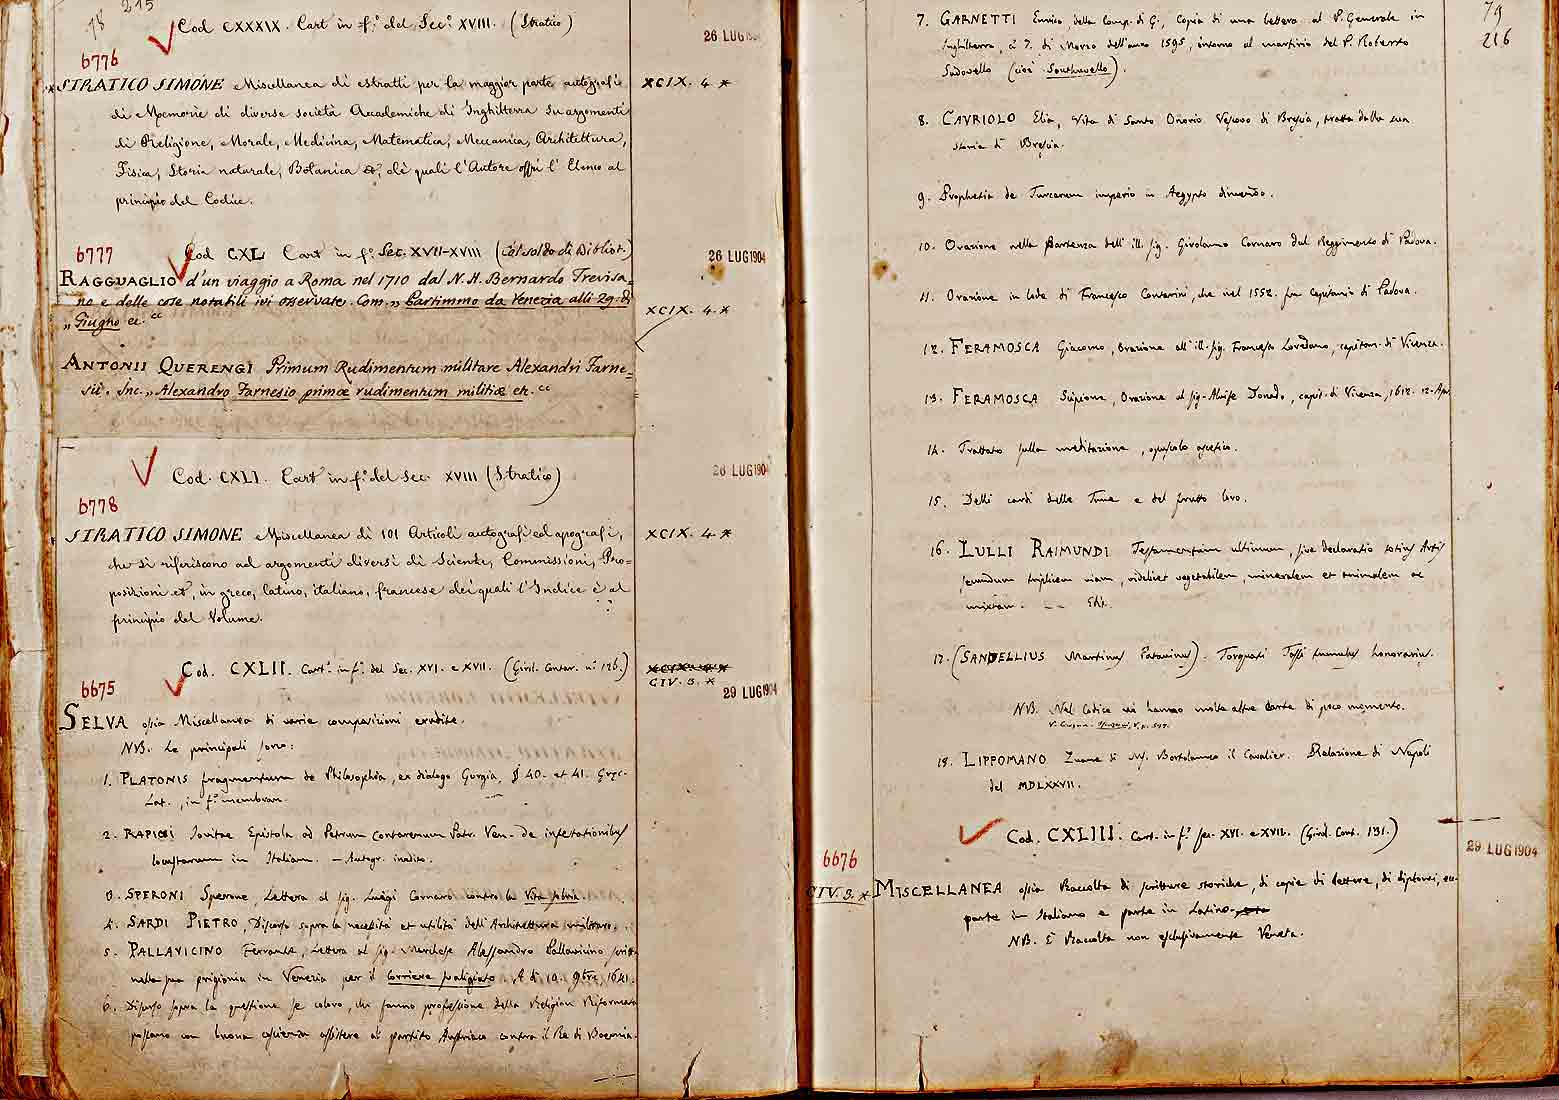 78 215
Cod CXXXIX. Cart in f.° del Sec.° XVIII. (Stratico)
26 LUG
6776
STRATICO SIMONE Miscellanea di estratti per la maggior parte autografi XCIX. 4. *
di Memorie di diverse società Accademiche di Inghilterra su argomenti
di Religione, Morale, Medicina, Matematica, Meccanica, Architettura,
Fisica, Storia naturale, Botanica &, dè quali l'Autore offrì l'Elenco al
principio del Codice.
6777 Cod CXL Cart in f.° Sec. XVII-XVIII (Col soldo di Bibliot.) 26 LUG 1904
RAGGUAGLIO d'un viaggio a Roma nel 1710 dal N. H. Bernardo Trevisa=
no e delle cose notabili ivi osservate. Com. „ Partimmo da Venezia alli 29. di XCIX. 4. *
„ Giugno ec. “
ANTONII QUERENGI Primum Rudimentum militare Alexandri Farne=
sii. Inc. „ Alexandro Farnesio primæ rudimentum militiæ etc. “
Cod. CXLI. Cart in f.° del Sec. XVIII (Stratico) 26 LUG 1904
6778
STRATICO SIMONE Miscellanea di 101 Articoli autografi ed apografi, XCIX. 4. *
che si riferiscono ad argomenti diversi di Scienze, Commissioni, Pro=
posizioni et, in greco, latino, italiano, francese dei quali l'Indice è al
principio del Volume.
Cod. CXLII. Cart. in f.° del Sec. XVI. e XVII. (Girol. Contar. n.° 126.)
CIV. 3. *
6675 29 LUG 1904
SELVA ossia Miscellanea di varie composizioni erudite.
NB. Le principali sono:
1. PLATONIS fragmentum de Philosophia, ex dialogo Gorgia, § 40. et 41. Græc-
Lat., in f.° membran.
2. Jovitae Epistola ad Petrum Contarenum Patr. Ven. de infestationibus
locustarum in Italiam. — Autogr. inedito.
3. SPERONI Sperone, Lettera al sig. Luigi Cornaro contro la Vita sobria.
4. SARDI PIETRO, Discorso sopra la necessità et utilità dell'Architettura militare.
5. PALLAVICINO Ferrante, Lettera al sig. Marchese Alessandro Pallavicino, scritta
nella sua prigionia in Venezia per il Corriere svaligiato. A dì 10. 9bre, 1641.
6. Discorso sopra la questione se coloro, che fanno professione della Religion Riformata
possano con buona coscienza assistere al partito Austriaco contra il Re di Boemia.
79
216
7. GARNETTI Enrico, della Comp. di G., Copia di una lettera al P. Generale in
Inghilterra, à 7. di Marzo dell'anno 1595, intorno al martirio del P. Roberto
Sudovello (cioè Southuvello).
8. CAVRIOLO Elia, Vita di Santo Onorio Vescovo di Brescia, tratta dalla sua
storia di Brescia.
9. Prophetia de Turcarum imperio in Aegypto dimendo.
10. Orazione nella partenza dell'ill. sig. Girolamo Cornaro dal Reggimento di Padova.
11. Orazione in lode di Francesco Contarini, che nel 1552. fu capitanio di Padova.
12. FERAMOSCA Giacomo, Orazione all'ill. sig. Francesco Loredano, capitan. di Vicenza.
13. FERAMOSCA Scipione, Orazione al sig. Aluise Donado, capit. di Vicenza, 1612. 12. Apr.
14. Trattato sulla meditazione, opuscolo ascetico.
15. Delli cardi delle Tune e del frutto loro.
16. LULLI RAIMUNDI Testamentum ultimum, sive declaratio totius Artis
secundum triplicem viam, videlicet vegetabilem, mineralem et animalem ac
mixtam. — Ch.
17. (SANDELLIUS Martinus Patavinus). Torquati Tassi tumulus honorarius.
NB. Nel Codice vi hanno molte altre carte di poco momento.
18. LIPPOMANO Zuane di M. Bortolameo il Cavalier. Relazione di Napoli
del MDLXXVII.
Cod. CXLIII. Cart. in f.° sec. XVI. e XVII. (Girol. Cont. 131.)
6676 29 LUG 1904
CIV. 3. * MISCELLANEA ossia Raccolta di scritture storiche, di copie di lettere, di diplomi, ec.
parte in Italiano e parte in Latino.
NB. È Raccolta non esclusivamente Veneta.